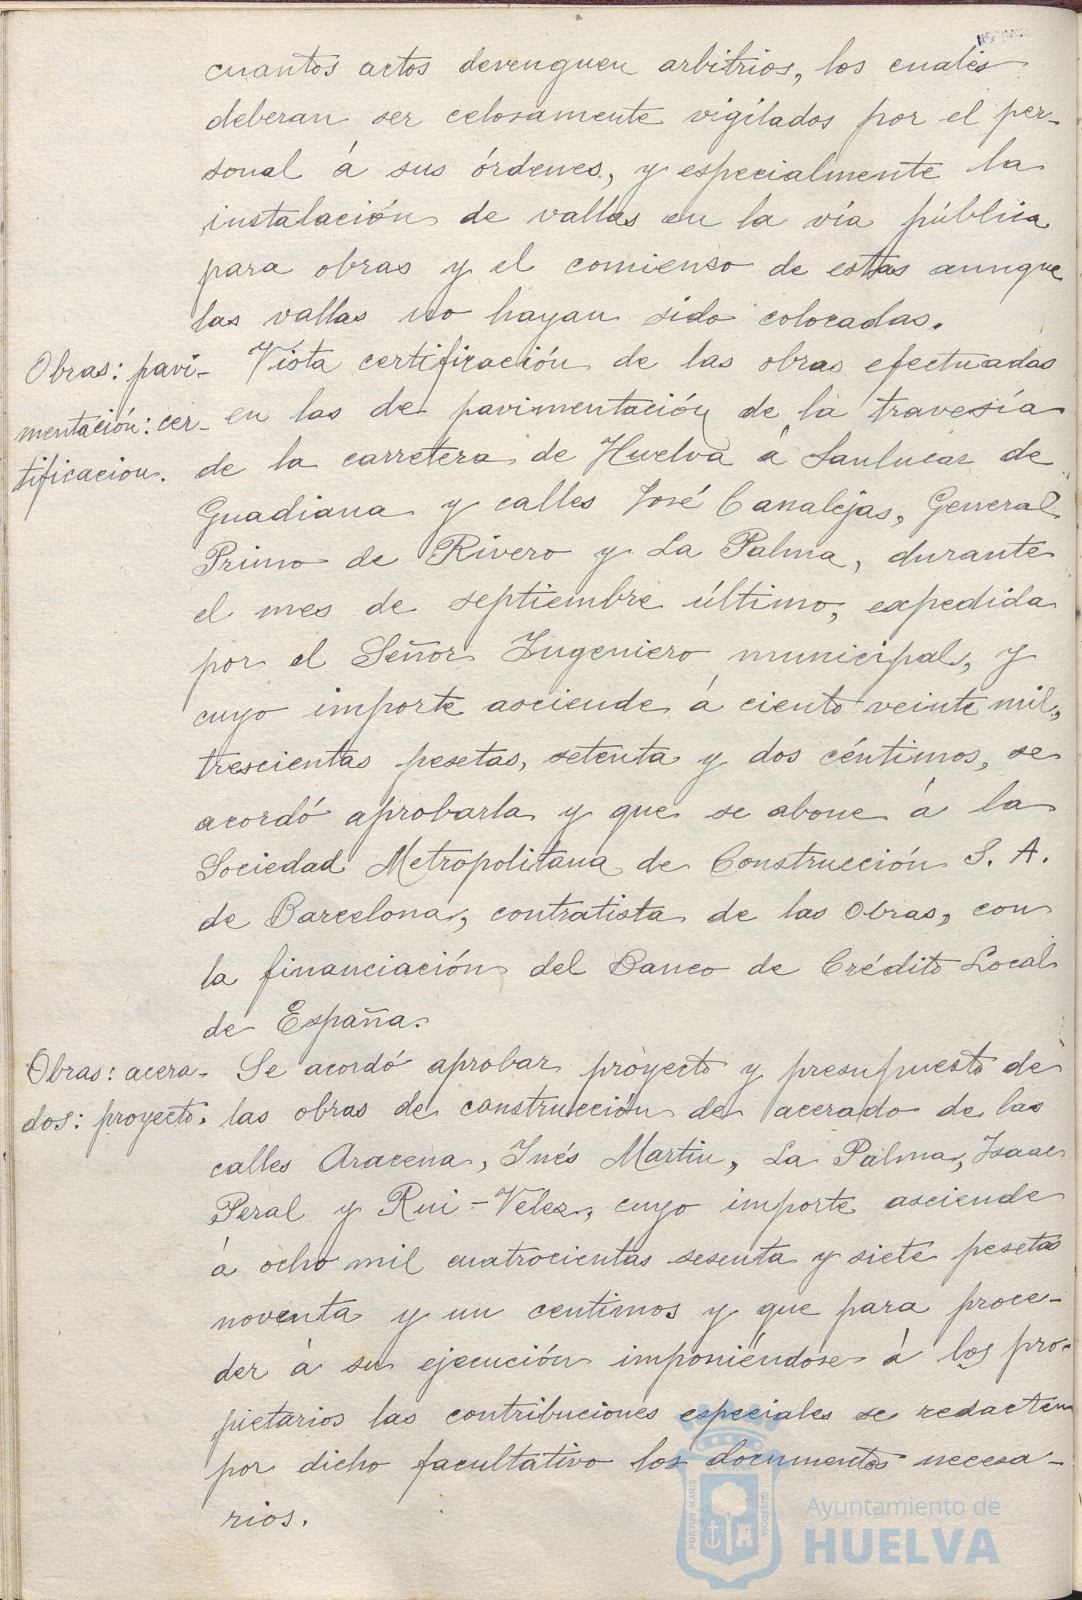 cuantos actos devenguen arbitrios, los cuales
deberan ser celosamente vigilados por el per-
sonal á sus órdenes, y especialmente la
instalación de vallas en la vía pública
para obras y el comienso de estas aunque
las vallas no hayan sido colocadas.
Obras: pavi-
mentación: cer-
tificacion.
Vista certificación de las obras efectuadas
en las de pavimentación de la travesía
de la carretera de Huelva á Sanlucar de
Guadiana y calles José Canalejas, General
Primo de Rivero y La Palma, durante
el mes de septiembre último, expedida
por el Señor Ingeniero municipal, y
cuyo importe asciende á ciento veinte mil,
trescientas pesetas, setenta y dos céntimos, se
acordó aprobarla y que se abone á la
Sociedad Metropolitana de Construcción S. A.
de Barcelona, contratista de las obras, con
la financiación del Banco de Crédito Local
de España.
Obras: acera-
dos: proyecto.
Se acordó aprobar proyecto y presupuesto de
las obras de construcción de acerado de las
calles Aracena, Inés Martin, La Palma, Isaac
Peral y Rui-Velez, cuyo importe asciende
á ocho mil cuatrocientas sesenta y siete pesetas
noventa y un centimos y que para proce-
der á su ejecución imponiéndose á los pro-
pietarios las contribuciones especiales se redacten
por dicho facultativo los documentos necesa-
rios.
PORTUS MARIS
CUSTODIA
Ayuntamiento de
HUELVA